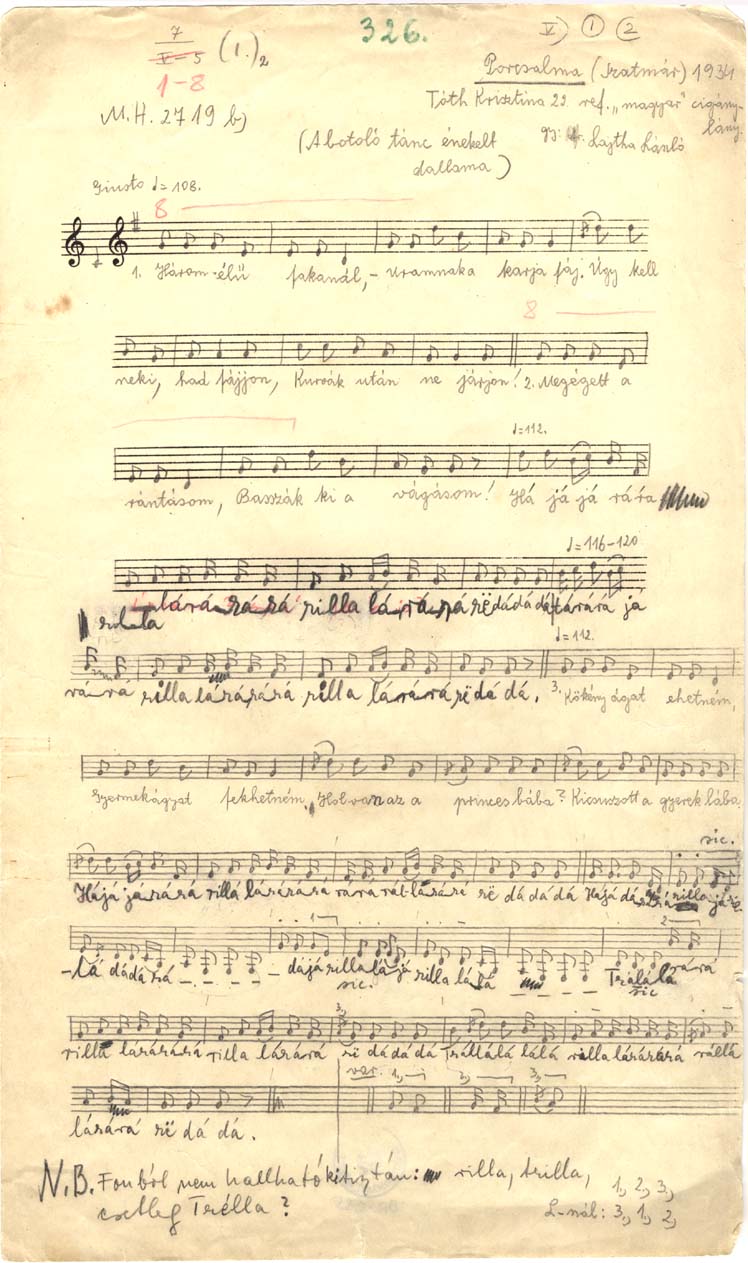 7
V-5 (1.)2
326.
V) 1 2
1-8
Porcsalma (Szatmár) 1934
M.H. 2719 b)
Tóth Krisztina 22. ref. „magyar” cigány-
lány.
gy: Lajtha László
(A botoló tánc énekelt
dallama)
Giusto ♩=108.
8
1. Három-élü fakanál, - Uramnaka karja fáj. Úgy kell
8
neki, had fájjon, Kurvák után ne járjon! 2. Megégett a
♩=112.
rántásom, Basszák ki a vágásom! Há já já rára
♩=116-120
lárá rárá rilla lárárárá rë dá dá dá tárára já
♩=112.
rárá rilla lárárárá rilla lárárá rë dá dá. 3. Kökény ágat ehetném,
Gyermekágyat fekhetném, Hol van az a princes bába? Kicsuszott a gyerek lába.
sic.
Hájá járárá rillá lárárárá rë dá dá dá Hajá
1
2
-lá dádá rá dajá rilla lájá rilla lálá Trálálá rárá
sic.
sic
3,
rilla lárárárá rilla lárárá rë dá dá dá Trállálá lálá rilla lárárárá rállá
var. 1, 3, 3,
lárárá rë dá dá.
N.B. Fonból nem hallható ki tisztán: rilla, trilla,
1, 2, 3,
esetleg Trélla?
L-nál: 3, 1, 2,